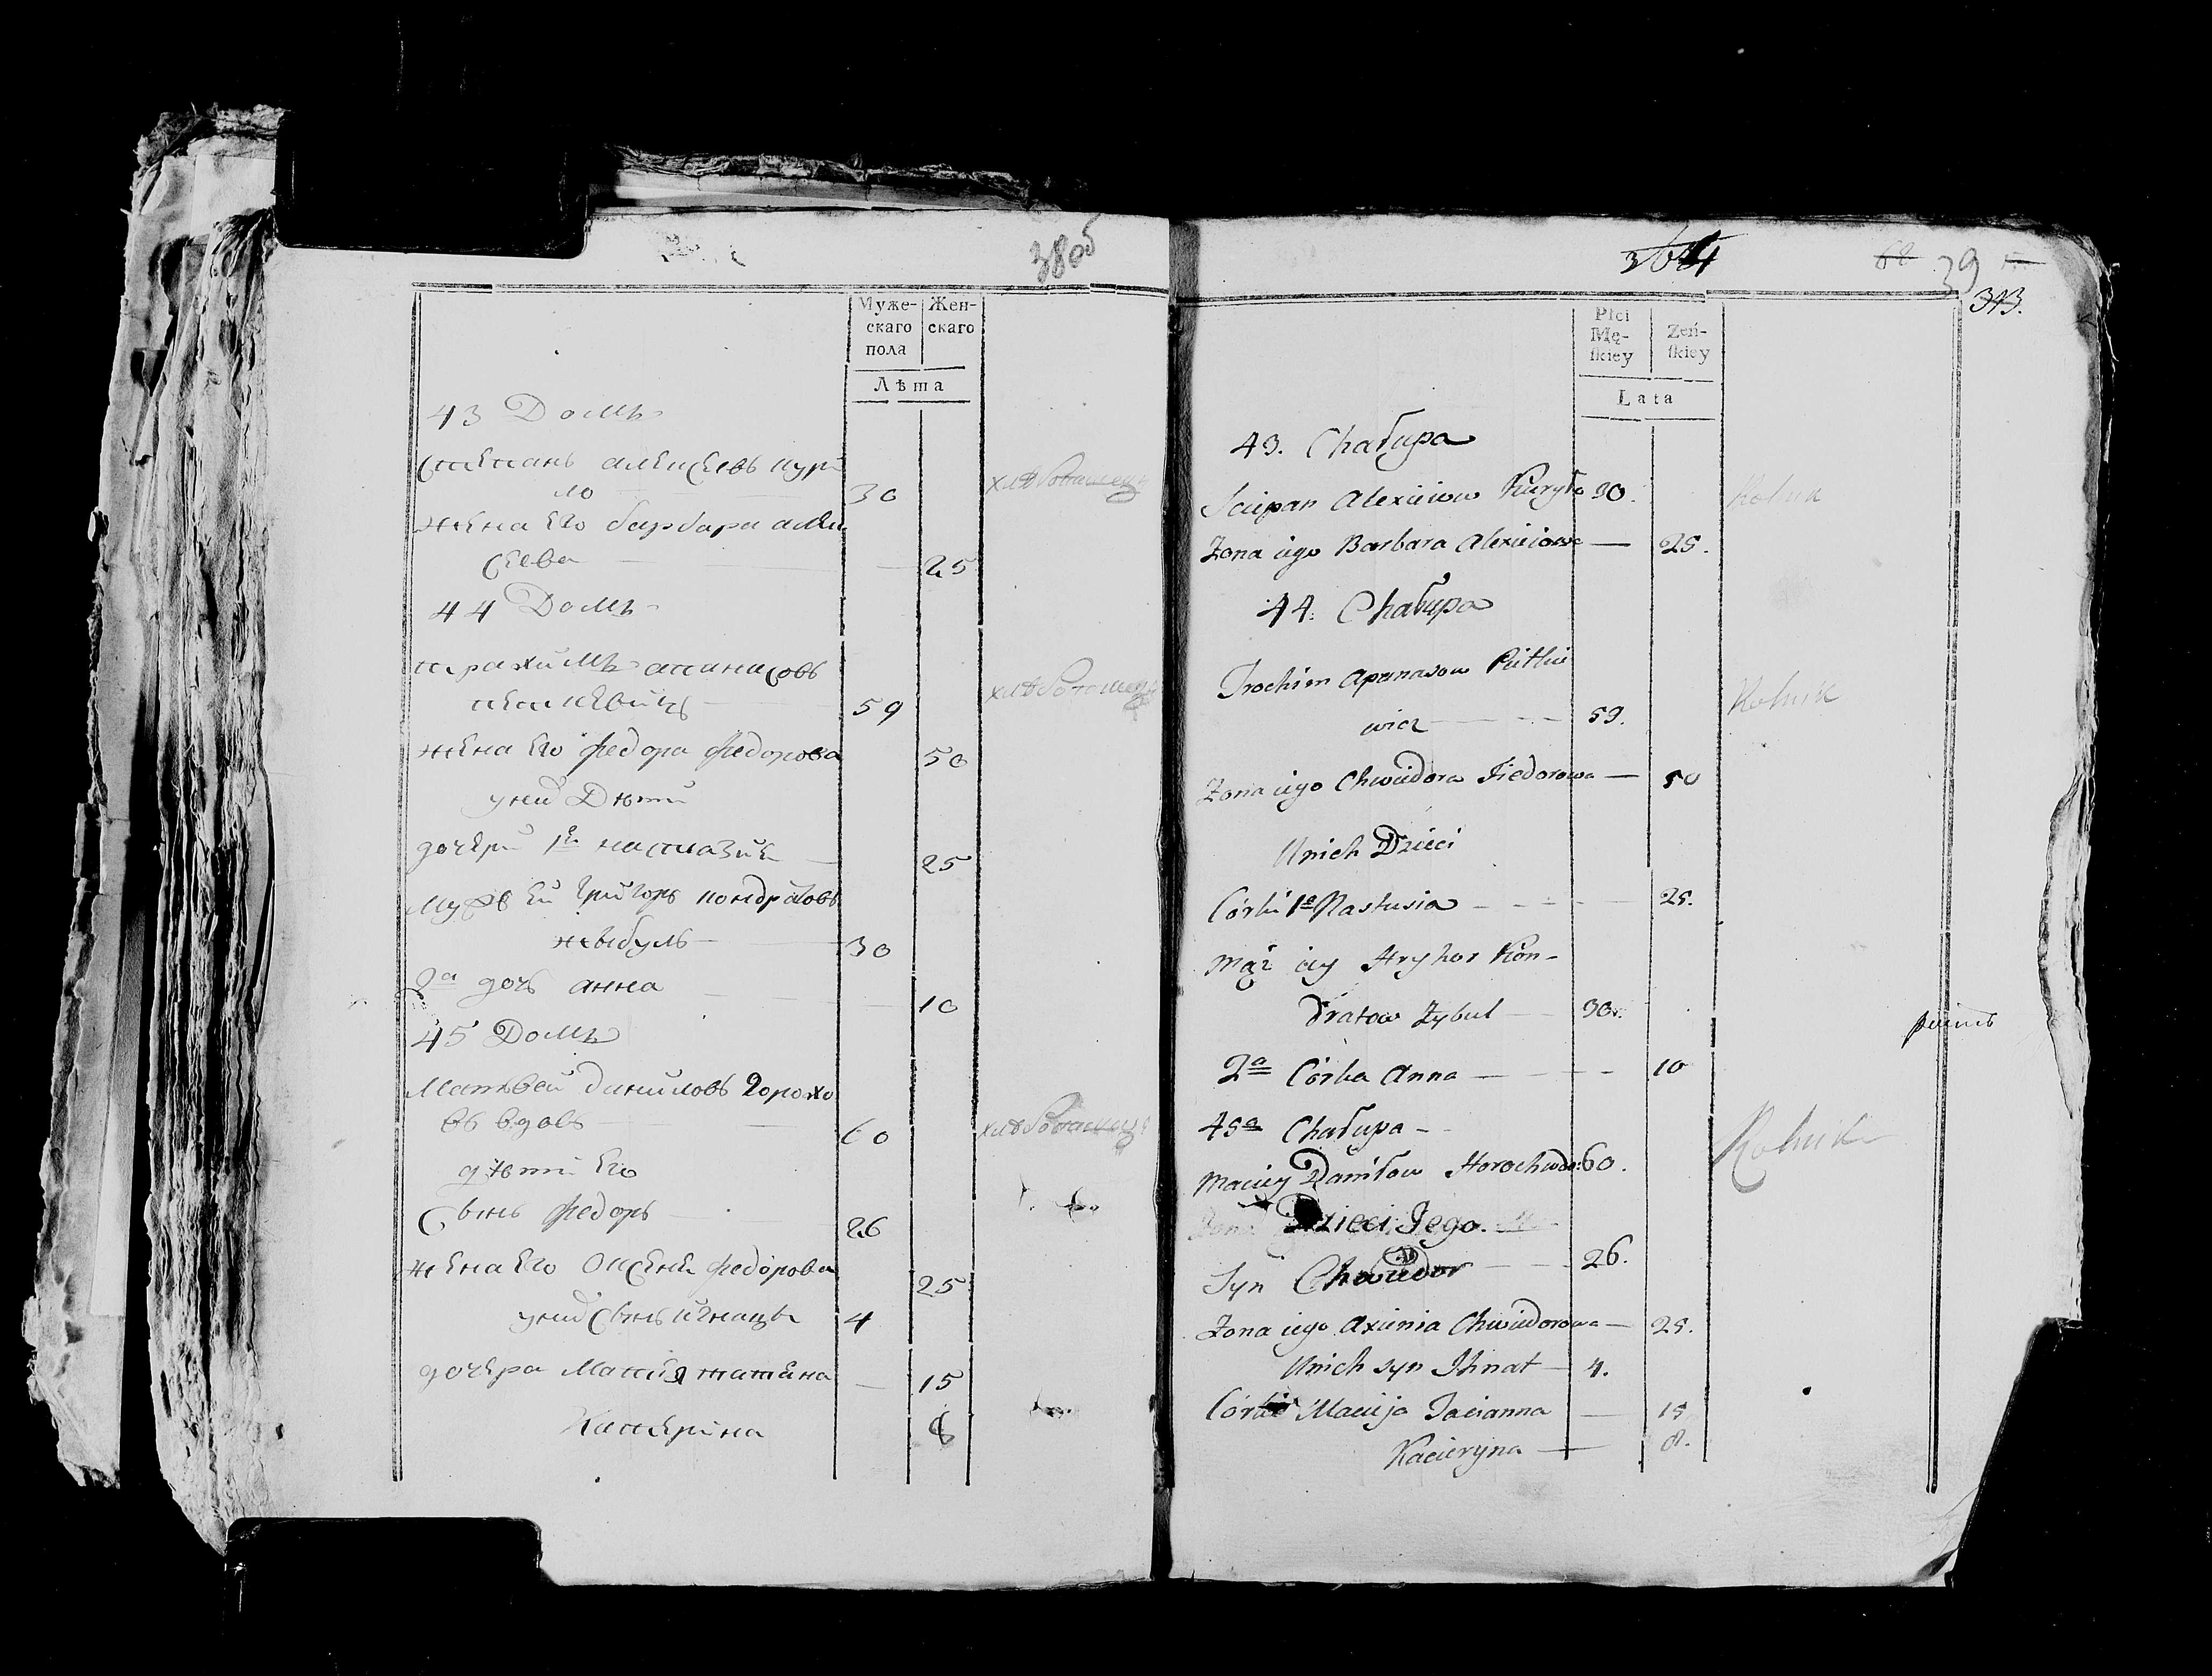 38 об
Муже-
скаго
пола
Жен-
скаго
Лѣта
43 Домъ
Степанъ алексеевъ кури
ло 30
жена Его барбара алек
сеева 25
44 Домъ
трахимъ апанасовъ
59
жена Его федора федорова 50
у них Дѣти
дочери 1я настазия 25
мужъ Ей григоръ кондратовъ
30
2а дочь анна 10
45 Домъ
Матвей даниловъ горохо
въ вдовъ 60
дѣти Его
Сынъ федоръ 26
жена Его Оксеня федорова 25
у них Сынъ игнатъ 4
дочера татяна 15
Катерина 8
39
313.
Płci
Mę-
ſkiey
Zeń-
ſkiey
Lata
43. Chałupa
Sciepan Alexieiow Kuryło 30. Rolnik
Zona iego Barbara Alexieiowa 25.
44. Chałupa
Trochim Apanasow Pietkie
wicz 59. Rolnik
Zona iego Chwiedora Fiedorowa 50
U nich Dzieci
Córki 1a Nastusia 25.
Mąż iey Hryhor Kon-
dratow Zybul 30.
2a Córka Anna 10
45a Chałupa
Maciey Daniłow Horochow 60. Rolnik
Dzieci Jego.
Syn Chwiedor 26.
Zona iego Axienia Chwiedorowa 25.
U nich syn Ihnat 4.
Córki Macieja Tacianna 15
Kacieryna 8.